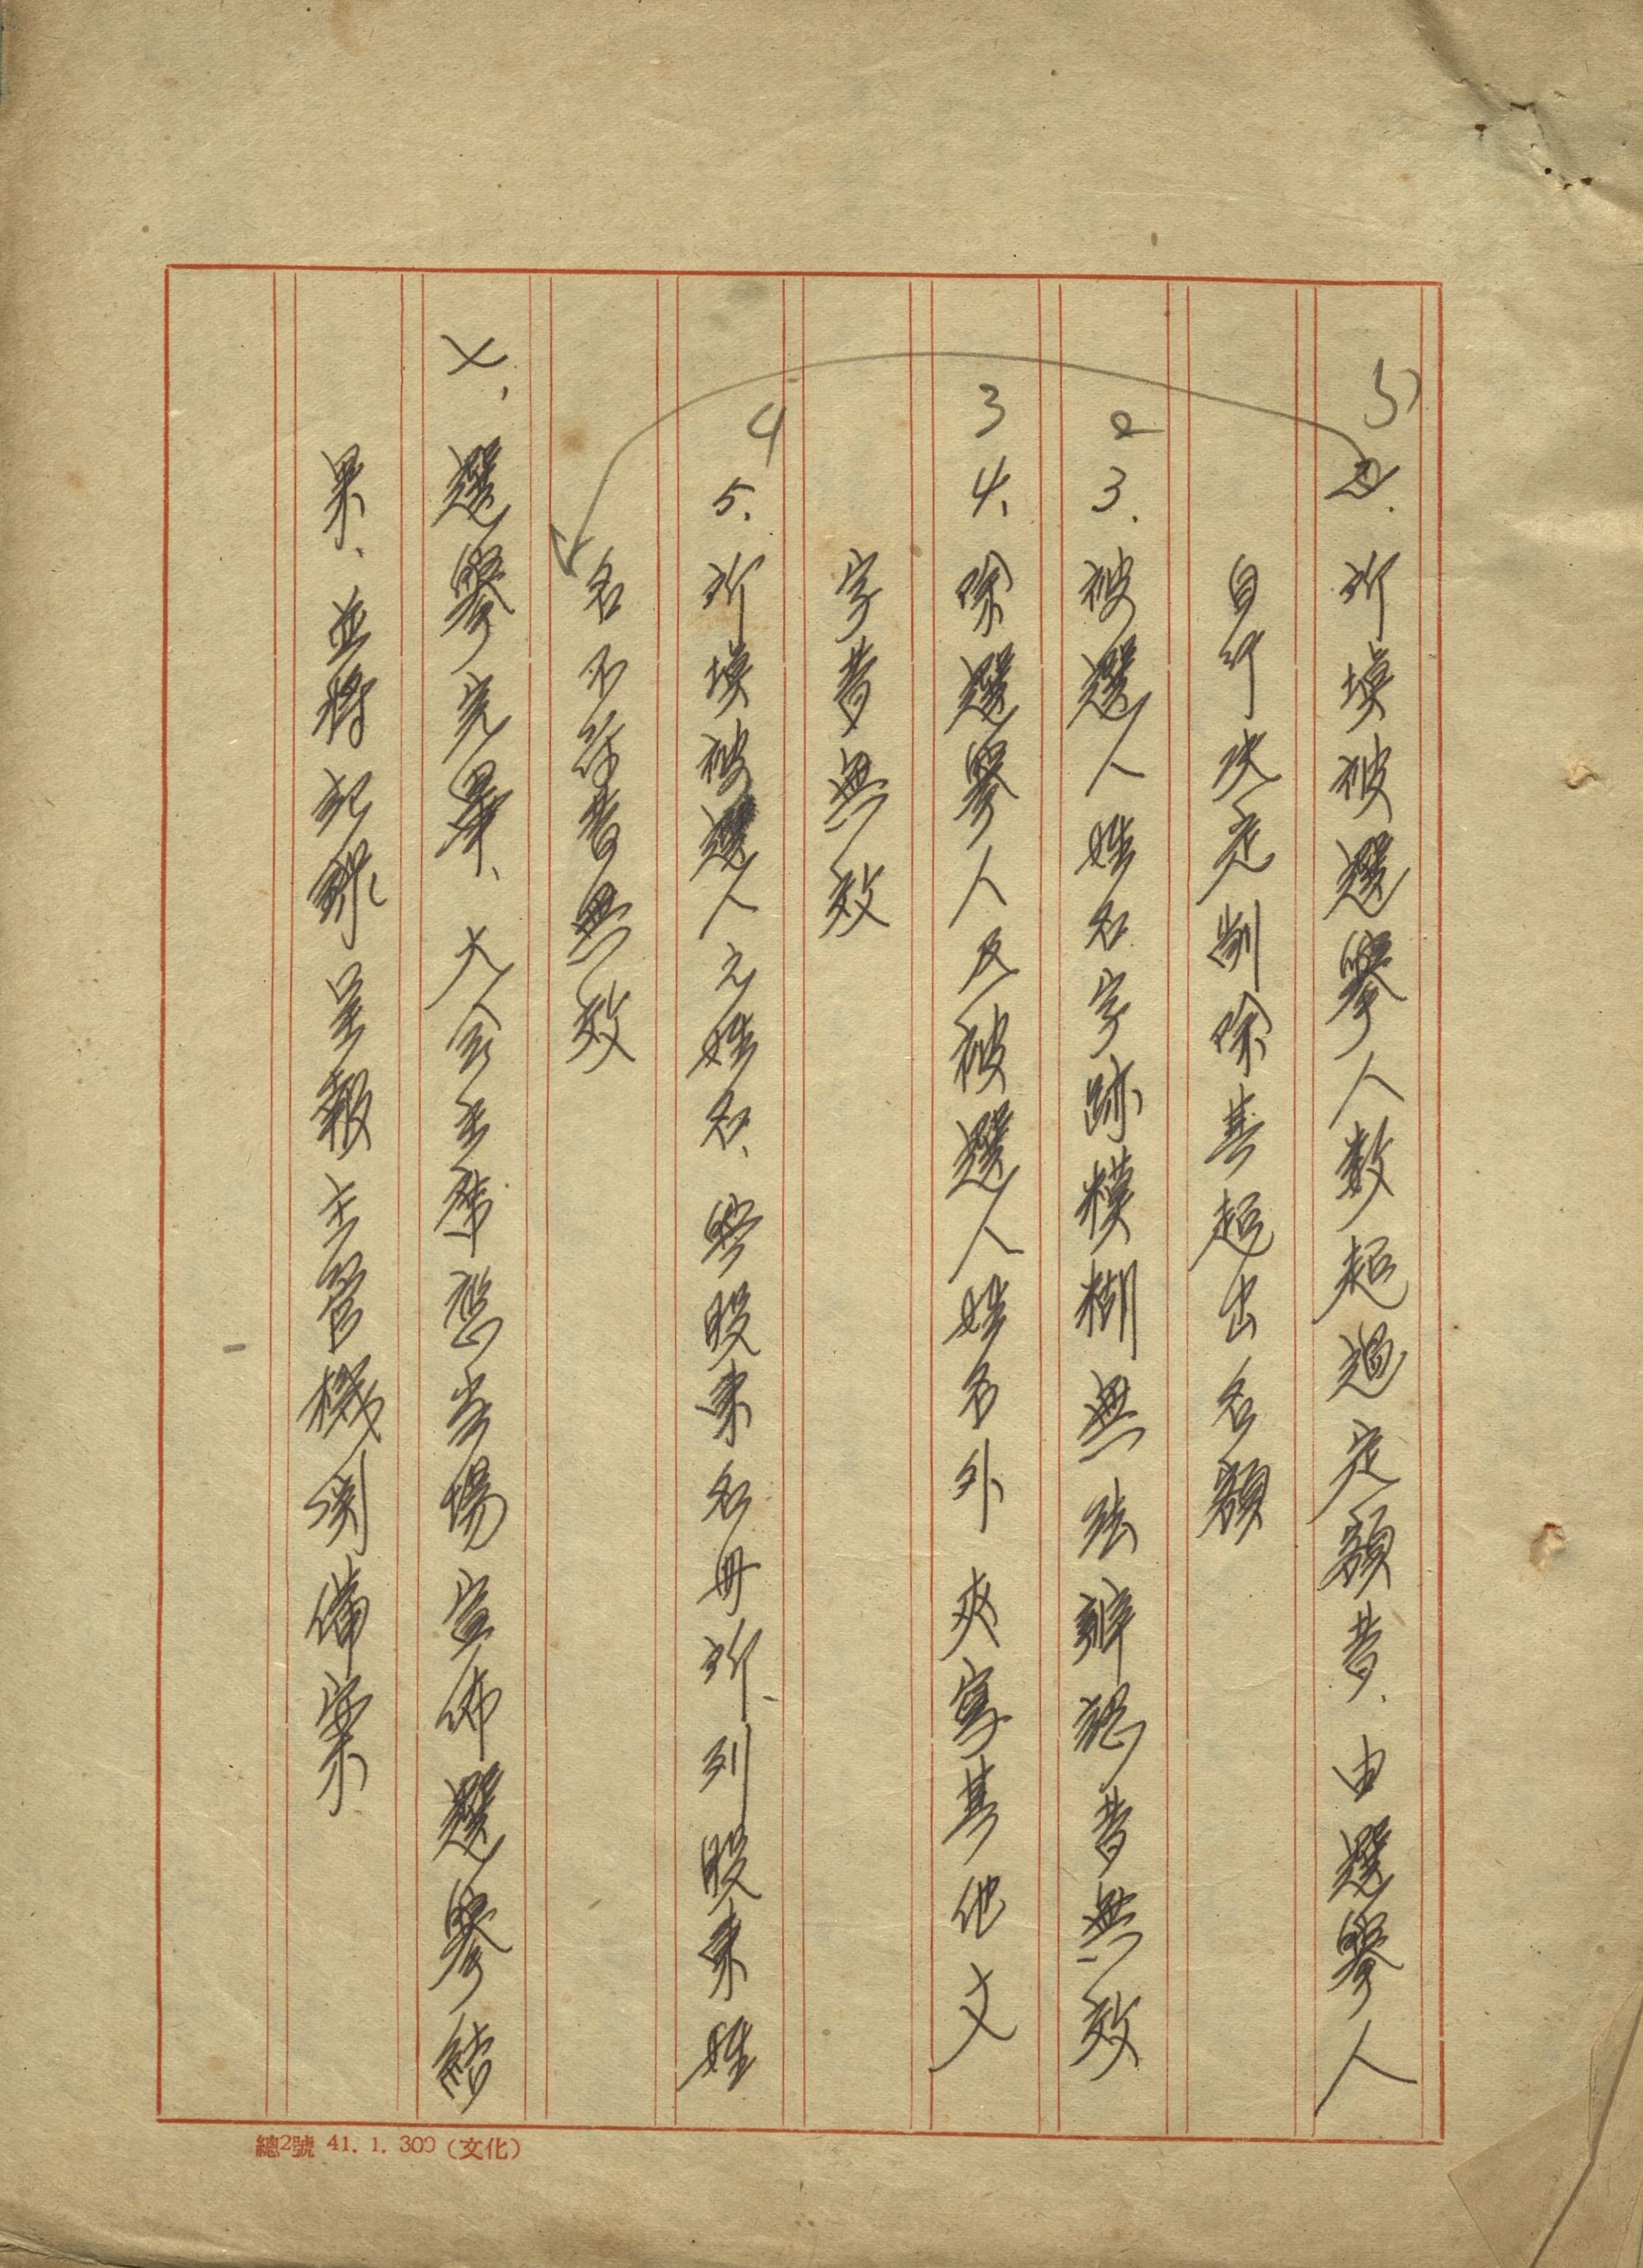 5 2. 所填被選舉人数超過定額者、由選舉人
自行决定刪除其超出名額
2 3. 被選人姓名字跡模糊無法辨認者無效
3 4. 除選舉人及被選人姓名外夾寫其他文
字者無效
4 5. 所填被選人之姓名、與股東名冊所列股東姓
名不符者無效
七、選舉完畢、大会主席應当場宣佈選舉結
果、並将記錄呈報主管機関備案
總2號 41. 1. 300 (文化)